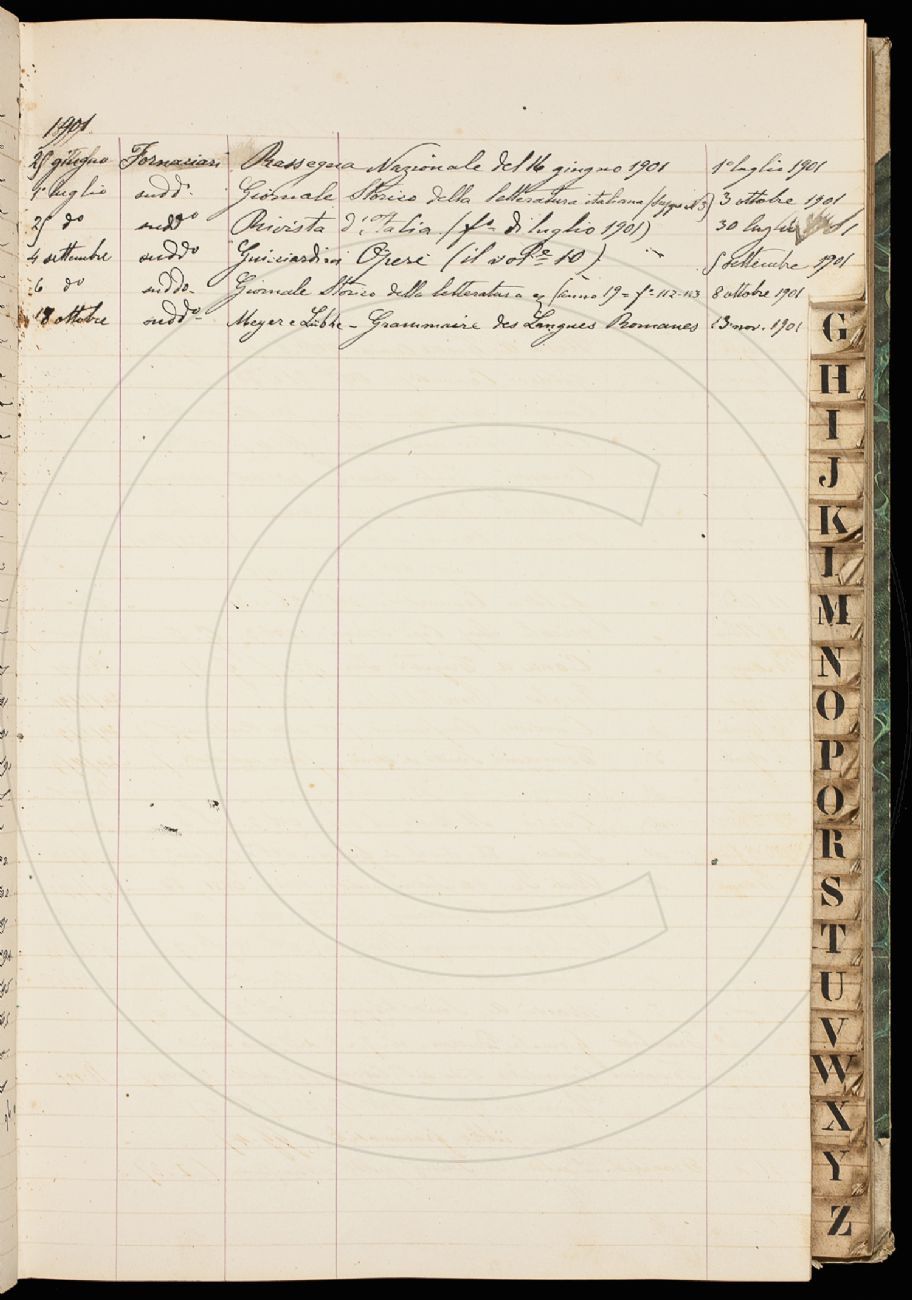 1901
25 giugno Fornaciari Rassegna Nazionale del 16 giugno 1901 1º luglio 1901
1º luglio sudd.º Giornale Storico della letteratura italiana (supp. n. 3) 3 ottobre 1901
25 dº suddº Rivista d'Italia (fº di luglio 1901) 30 luglio
4 settembre suddº Guicciardini Opere (il volº 10) 5 settembre 1901
6 dº suddº Giornale Storico della letteratura (anno 19 = fº 112-113 8 ottobre 1901
18 ottobre suddº Meyer e Lübke - Grammaire des Langues Romanes 13 nov. 1901
G
H
I
J
K
L
M
N
O
P
Q
R
S
T
U
V
W
X
Y
Z